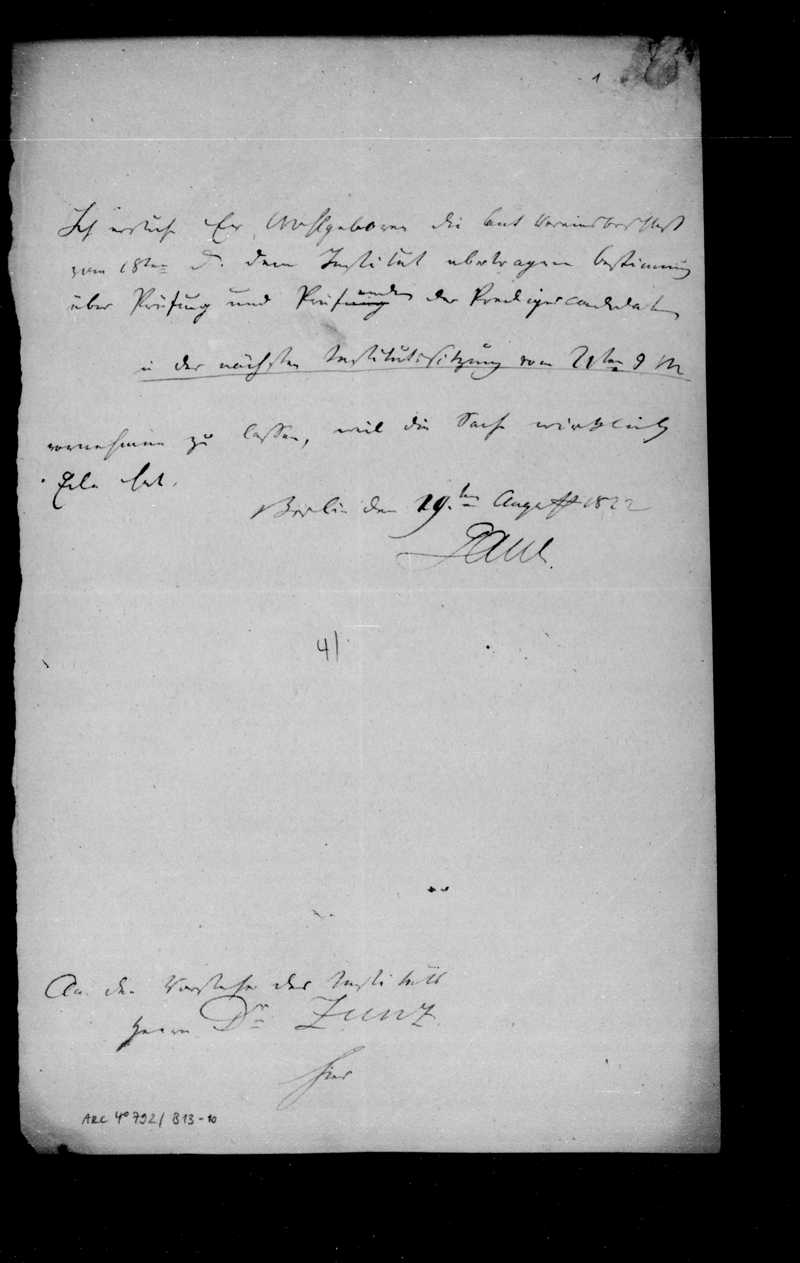 1
Ich ersuche Ew Wohlgeboren die laut Vereinsbeschluß
vom 18ten d. dem Institut übertragene Bestimmung
über Prüfung und Prüfung enden der Predigercandidaten
in der nächsten Institutssitzung vom 21ten d M
vornehmen zu lassen, weil die Sache wirklich
Eile hat.
Berlin den 19.ten August 1822
Gans.
41
An den Vorsteher des Instituts
Herrn Dr Zunz
hier
ARC 4° 792/ B13-10